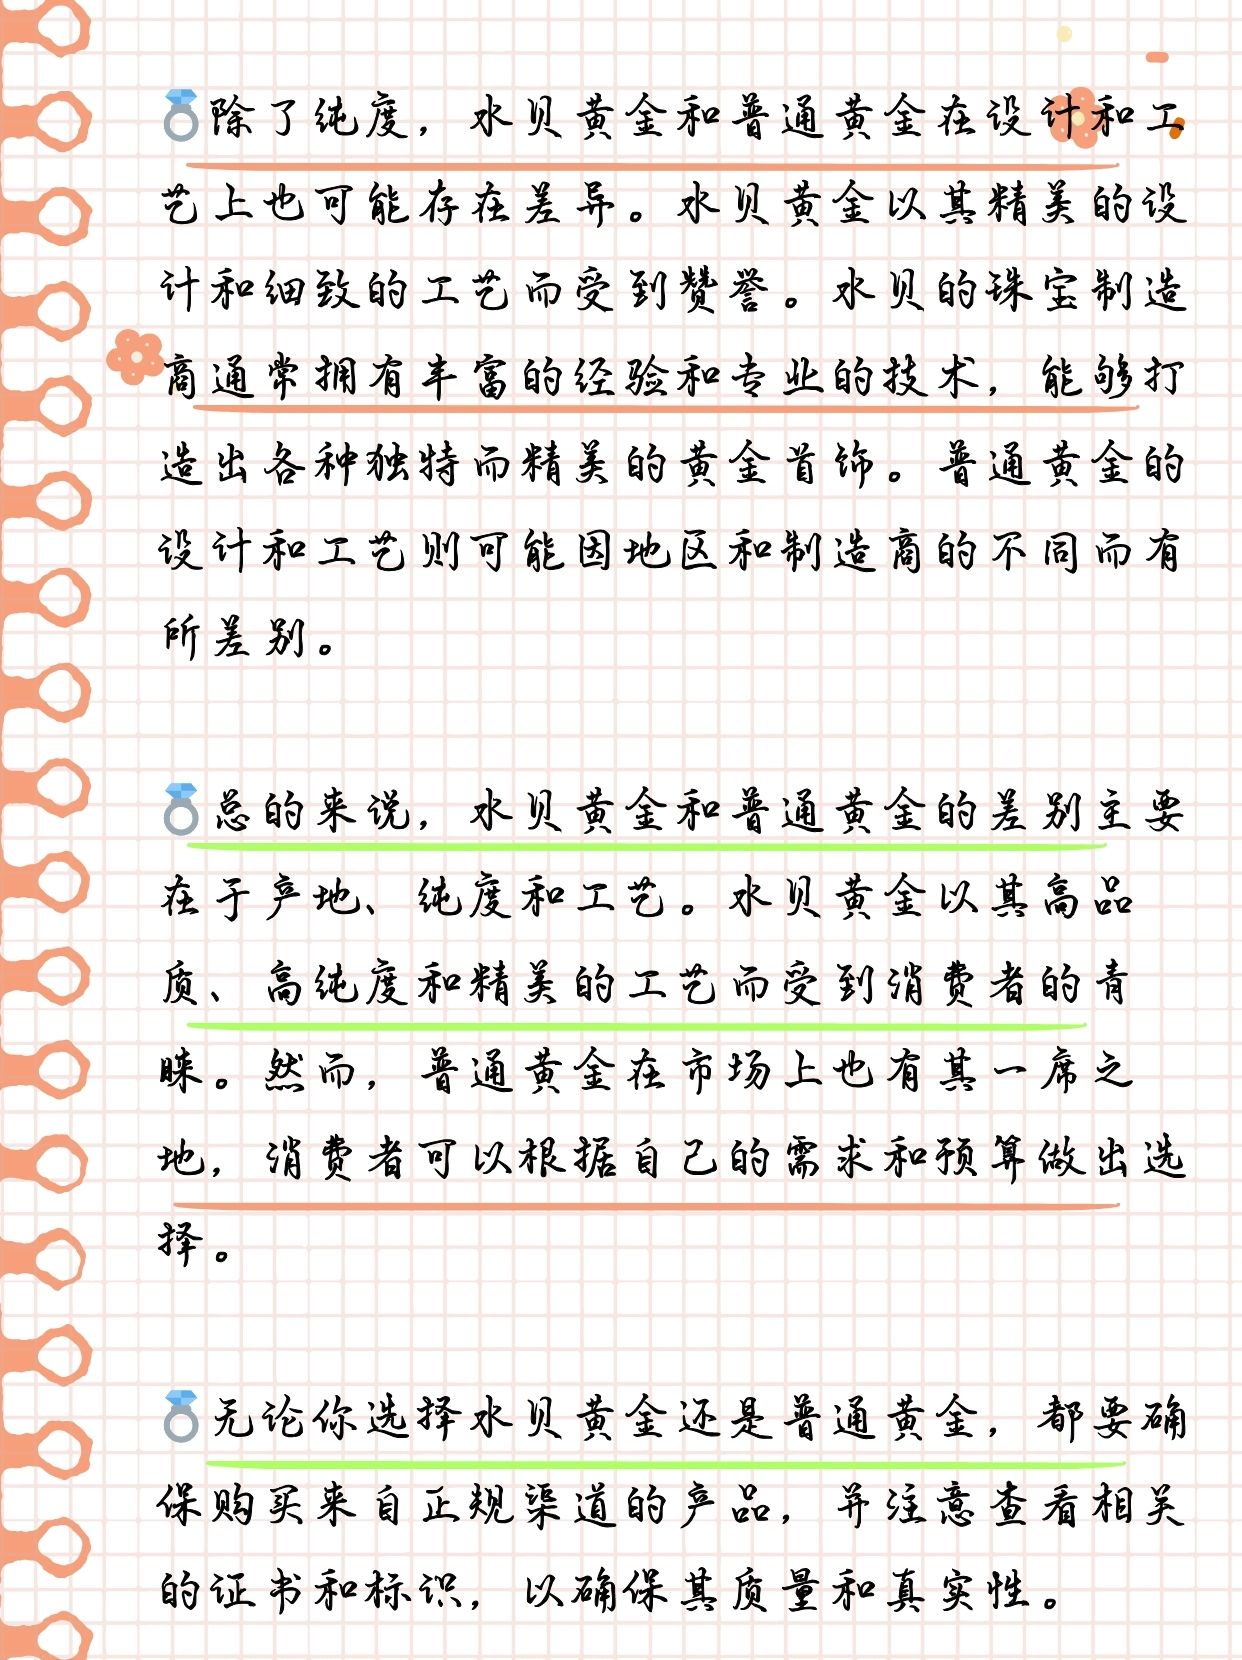 💍除了纯度，水贝黄金和普通黄金在设计和工
艺上也可能存在差异。水贝黄金以其精美的设
计和细致的工艺而受到赞誉。水贝的珠宝制造
商通常拥有丰富的经验和专业的技术，能够打
造出各种独特而精美的黄金首饰。普通黄金的
设计和工艺则可能因地区和制造商的不同而有
所差别。
💍总的来说，水贝黄金和普通黄金的差别主要
在于产地、纯度和工艺。水贝黄金以其高品
质、高纯度和精美的工艺而受到消费者的青
睐。然而，普通黄金在市场上也有其一席之
地，消费者可以根据自己的需求和预算做出选
择。
💍无论你选择水贝黄金还是普通黄金，都要确
保购买来自正规渠道的产品，并注意查看相关
的证书和标识，以确保其质量和真实性。